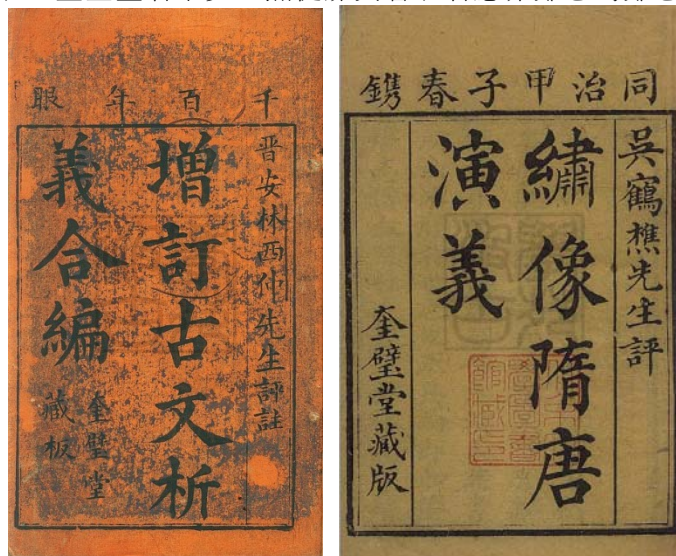 千百年眼
晋安林西仲先生評註
增訂古文析
義合編
奎壁堂
藏板
同治甲子春鐫
吳鶴樵先生評
繡像隋唐
演義
奎壁堂藏版